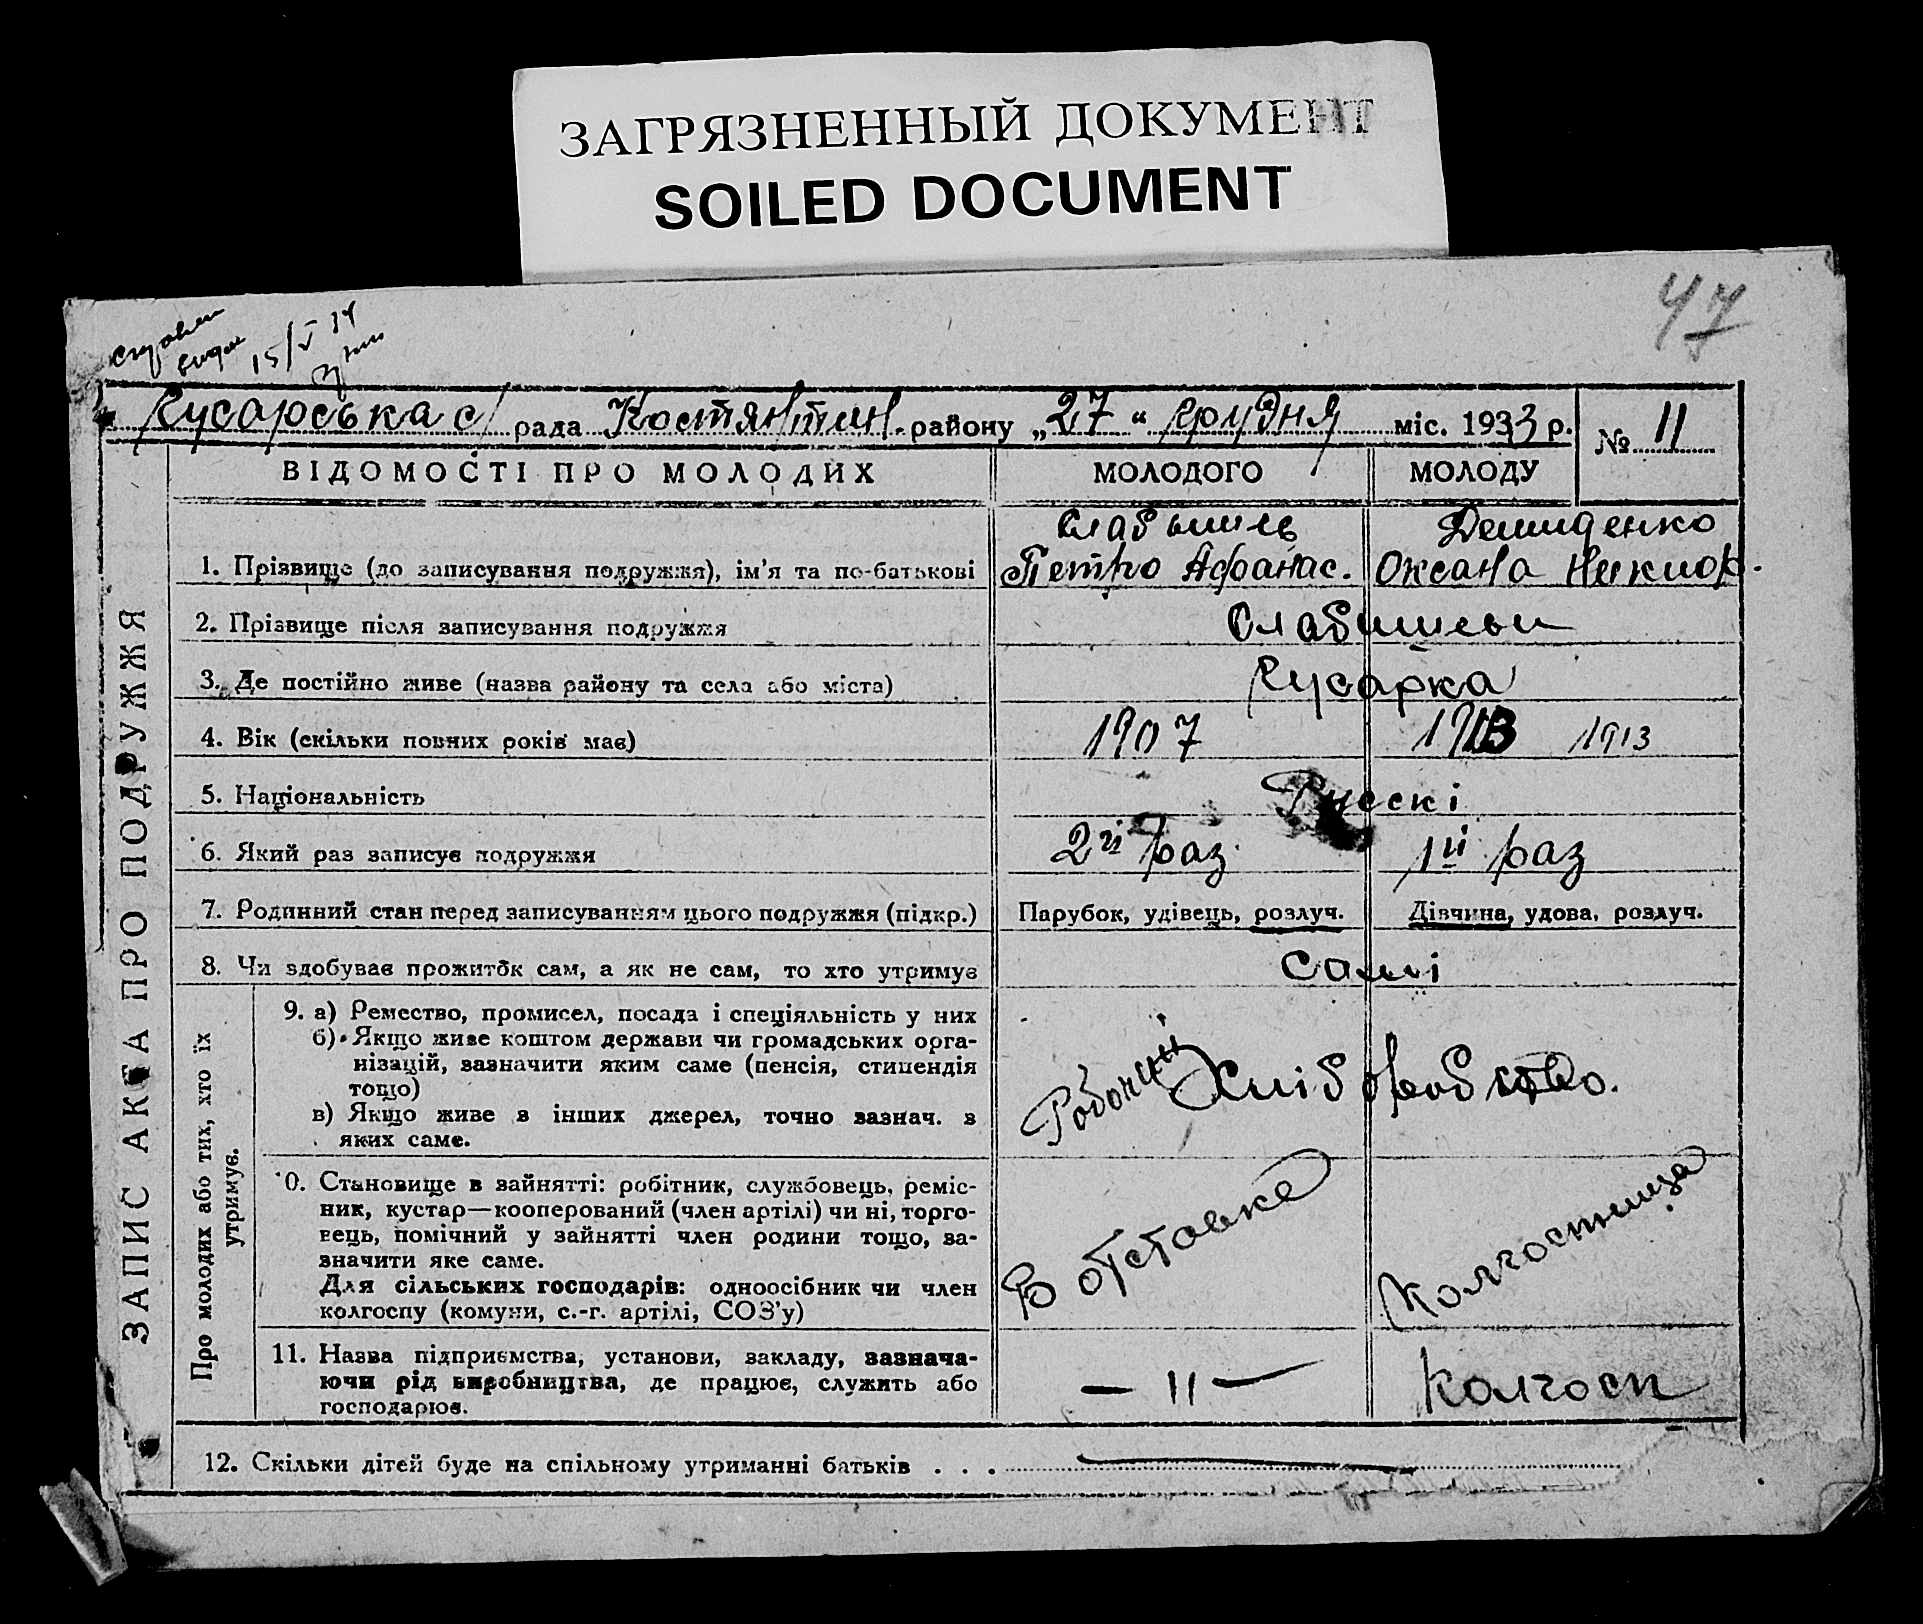 ЗАГРЯЗНЕННЫЙ ДОКУМЕНТ
SOILED DOCUMENT
47
15/V 34
Кусарська с/ рада Костянтин. району „27“ грудня міс. 1933 р.
№ 11
ВІДОМОСТІ ПРО МОЛОДИХ МОЛОДОГО МОЛОДУ
ЗАПИС АКТА ПРО ПОДРУЖЖЯ
Демиденко
1. Прізвище (до записування подружжя), ім'я та по-батькові Петро Афанас. Оксана Никиор.
2. Прізвище після записування подружжя
3. Де постійно живе (назва району та села або міста) Кусарка
4. Вік (скільки повних років має) 1907 1913 1913
5. Національність Рускі
6. Який раз записує подружжя 2й раз. 1й раз
7. Родинний стан перед записуванням цього подружжя (підкр.) Парубок, удівець, розлуч. Дівчина, удова, розлуч.
8. Чи здобуває прожиток сам, а як не сам, то хто утримує самі
Про молодих або тих, хто їх
утримує.
9. а) Ремество, промисел, посада і спеціяльність у них
б) Якщо живе коштом держави чи громадських орга-
нізацій, зазначити яким саме (пенсія, стипендія
тощо)
в) Якщо живе в інших джерел, точно зазнач. з
яких саме.
Робочий Хліборобство.
10. Становище в зайнятті: робітник, службовець, реміс-
ник, кустар—кооперований (член артілі) чи ні, торго-
вець, помічний у зайнятті член родини тощо, за-
значити яке саме.
Для сільських господарів: одноосібник чи член
колгоспу (комуни, с.-г. артілі, СОЗ'у)
В отставке Колгостница
11. Назва підприємства, установи, закладу, зазнача-
ючи рід виробництва, де працює, служить або
господарює.
— 〃 — Колгосп
12. Скільки дітей буде на спільному утриманні батьків . . . —